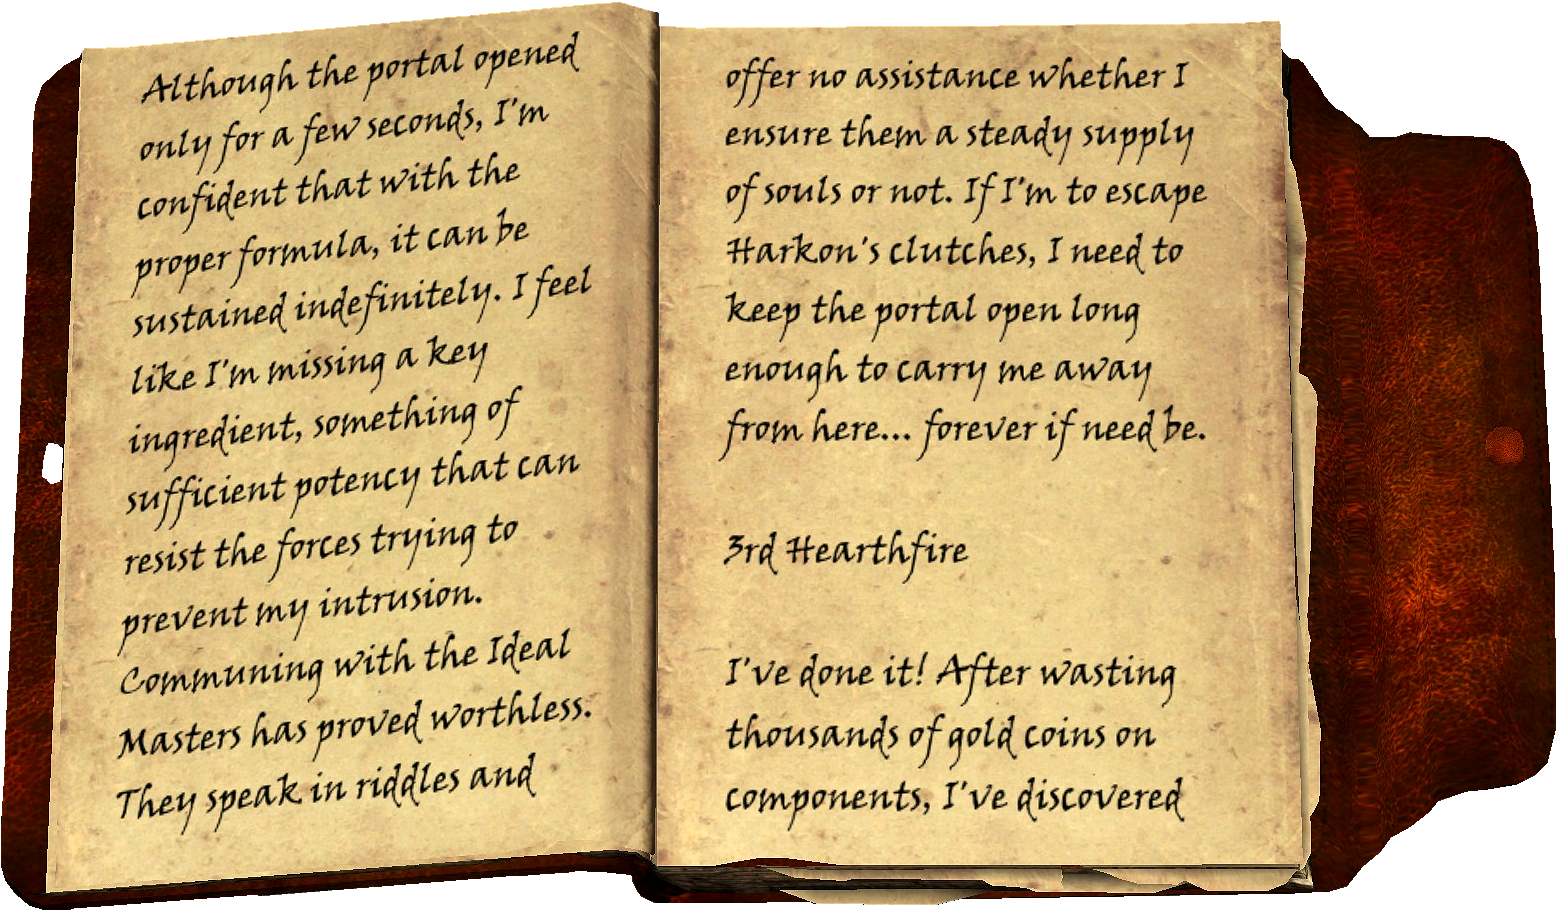 Although the portal opened
only for a few seconds, I'm
confident that with the
proper formula, it can be
sustained indefinitely. I feel
like I'm missing a key
ingredient, something of
sufficient potency that can
resist the forces trying to
prevent my intrusion.
Communing with the Ideal
Masters has proved worthless.
They speak in riddles and
offer no assistance whether I
ensure them a steady supply
of souls or not. If I'm to escape
Harkon's clutches, I need to
keep the portal open long
enough to carry me away
from here... forever if need be.
3rd Hearthfire
I've done it! After wasting
thousands of gold coins on
components, I've discovered